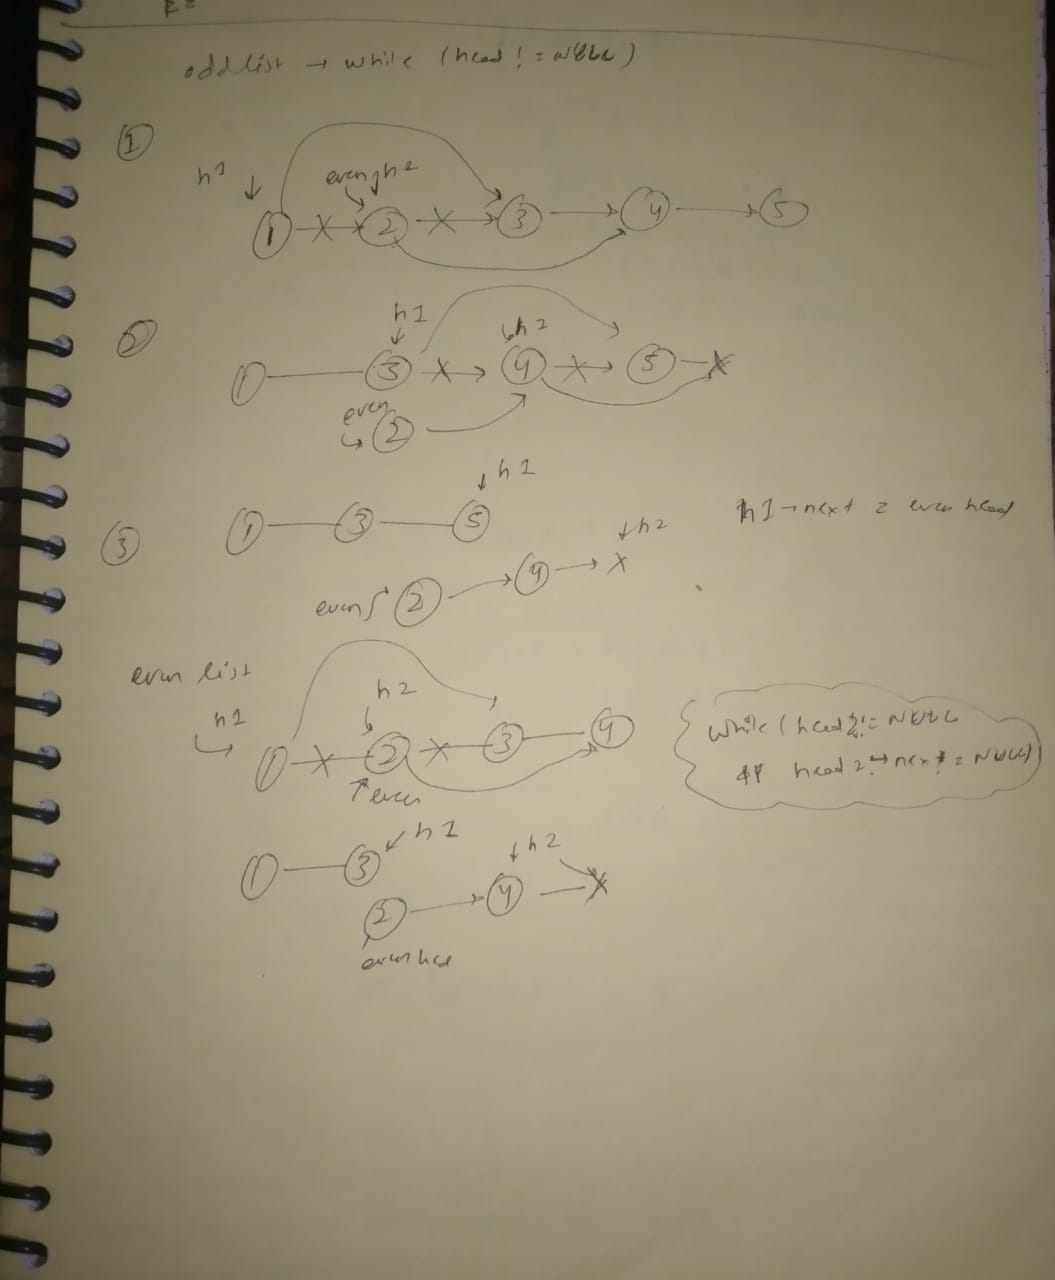 odd list → while (head != NULL)
①
h1
even h2
1 2 3 4 5
②
h1
h2
1 3 4 5
even
2
h1
③
1 3 5
h1 → next = even head
h2
even 2 4 x
even list
h2
h1
1 2 3 4
even
while (head2 != NULL
&& head2 → next != NULL)
h1
1 3
h2
2 4 x
even hea